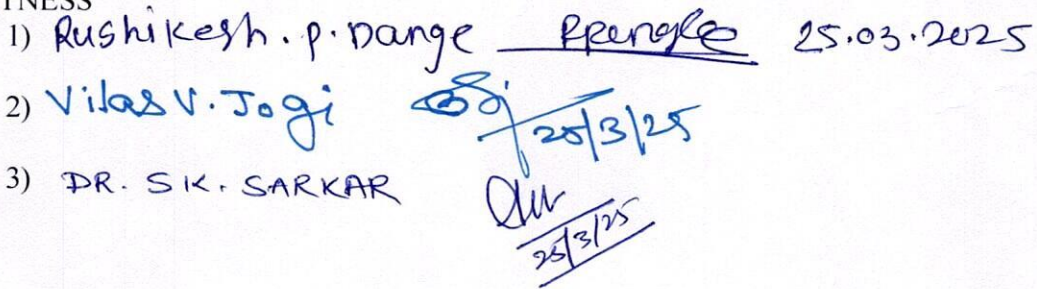 TNESS
1) Rushikesh. P. Dange 25.03.2025
2) Vilas V. Jogi 25/3/25
3) DR. SK. SARKAR
25/3/25